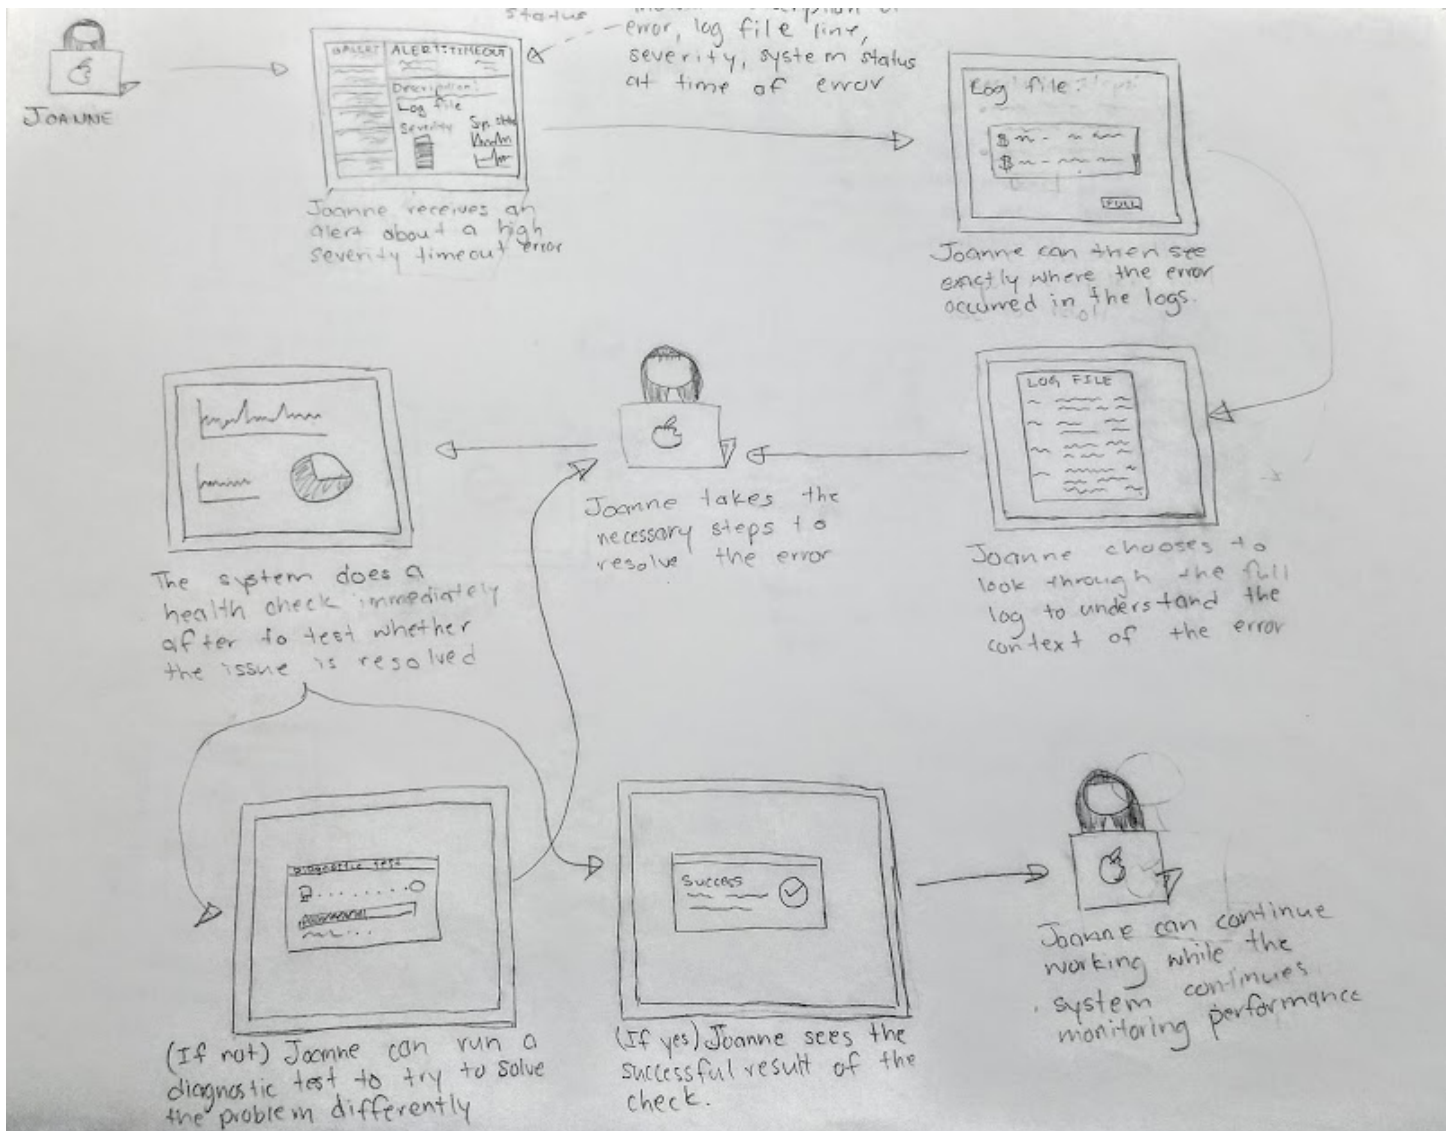 JOANNE
status
error, log file line,
severity, system status
at time of error
ALERT: TIMEOUT
Description:
Log file
Severity
Joanne receives an
alert about a high
severity timeout error
Log file:
FULL
Joanne can then see
exactly where the error
occurred in the logs.
LOG FILE
Joanne chooses to
look through the full
log to understand the
context of the error
Joanne takes the
necessary steps to
resolve the error
The system does a
health check immediately
after to test whether
the issue is resolved
Diagnostic test
(If not) Joanne can run a
diagnostic test to try to solve
the problem differently
Success
(If yes) Joanne sees the
successful result of the
check.
Joanne can continue
working while the
system continues
monitoring performance